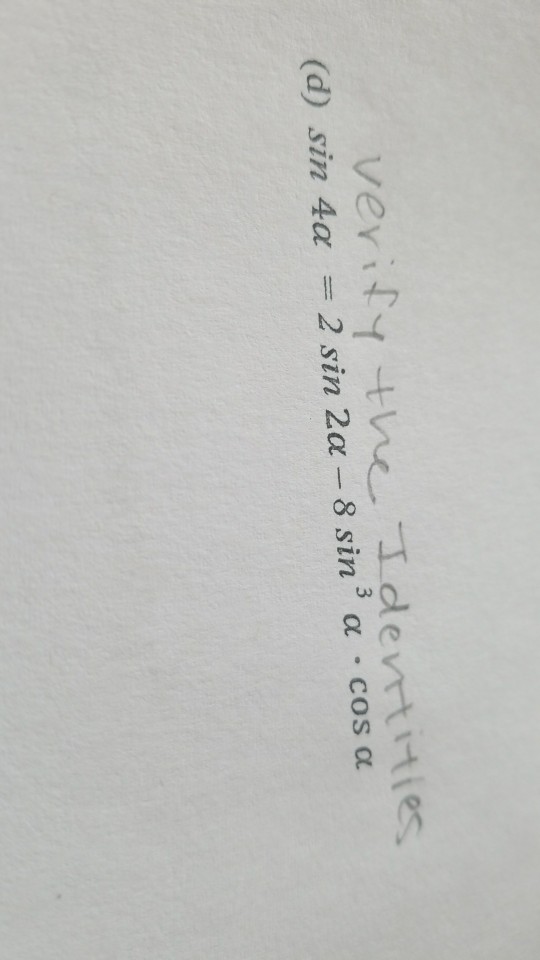 verify the Identities
(d) sin 4α = 2 sin 2α − 8 sin³ α · cos α